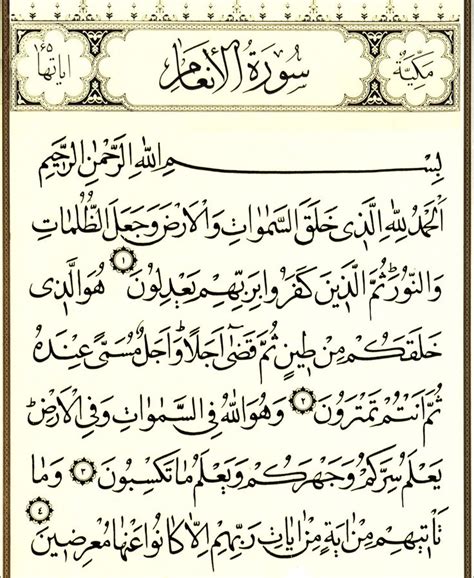 مكية سورة الأنعام اياتها ١٦٥
بِسْمِ اللهِ الرَّحْمٰنِ الرَّحِيمِ
اَلْحَمْدُ لِلهِ الَّذِي خَلَقَ السَّمٰوَاتِ وَالْاَرْضَ وَجَعَلَ الظُّلُمَاتِ
وَالنُّورَ ثُمَّ الَّذِينَ كَفَرُوا بِرَبِّهِمْ يَعْدِلُونَ ١ هُوَ الَّذِي
خَلَقَكُمْ مِنْ طِينٍ ثُمَّ قَضٰٓى اَجَلًا وَاَجَلٌ مُسَمًّى عِنْدَهُ
ثُمَّ اَنْتُمْ تَمْتَرُونَ ٢ وَهُوَ اللهُ فِي السَّمٰوَاتِ وَفِي الْاَرْضِ
يَعْلَمُ سِرَّكُمْ وَجَهْرَكُمْ وَيَعْلَمُ مَا تَكْسِبُونَ ٣ وَمَا
تَأْتِيهِمْ مِنْ اٰيَةٍ مِنْ اٰيَاتِ رَبِّهِمْ اِلَّا كَانُوا عَنْهَا مُعْرِضِينَ ٤